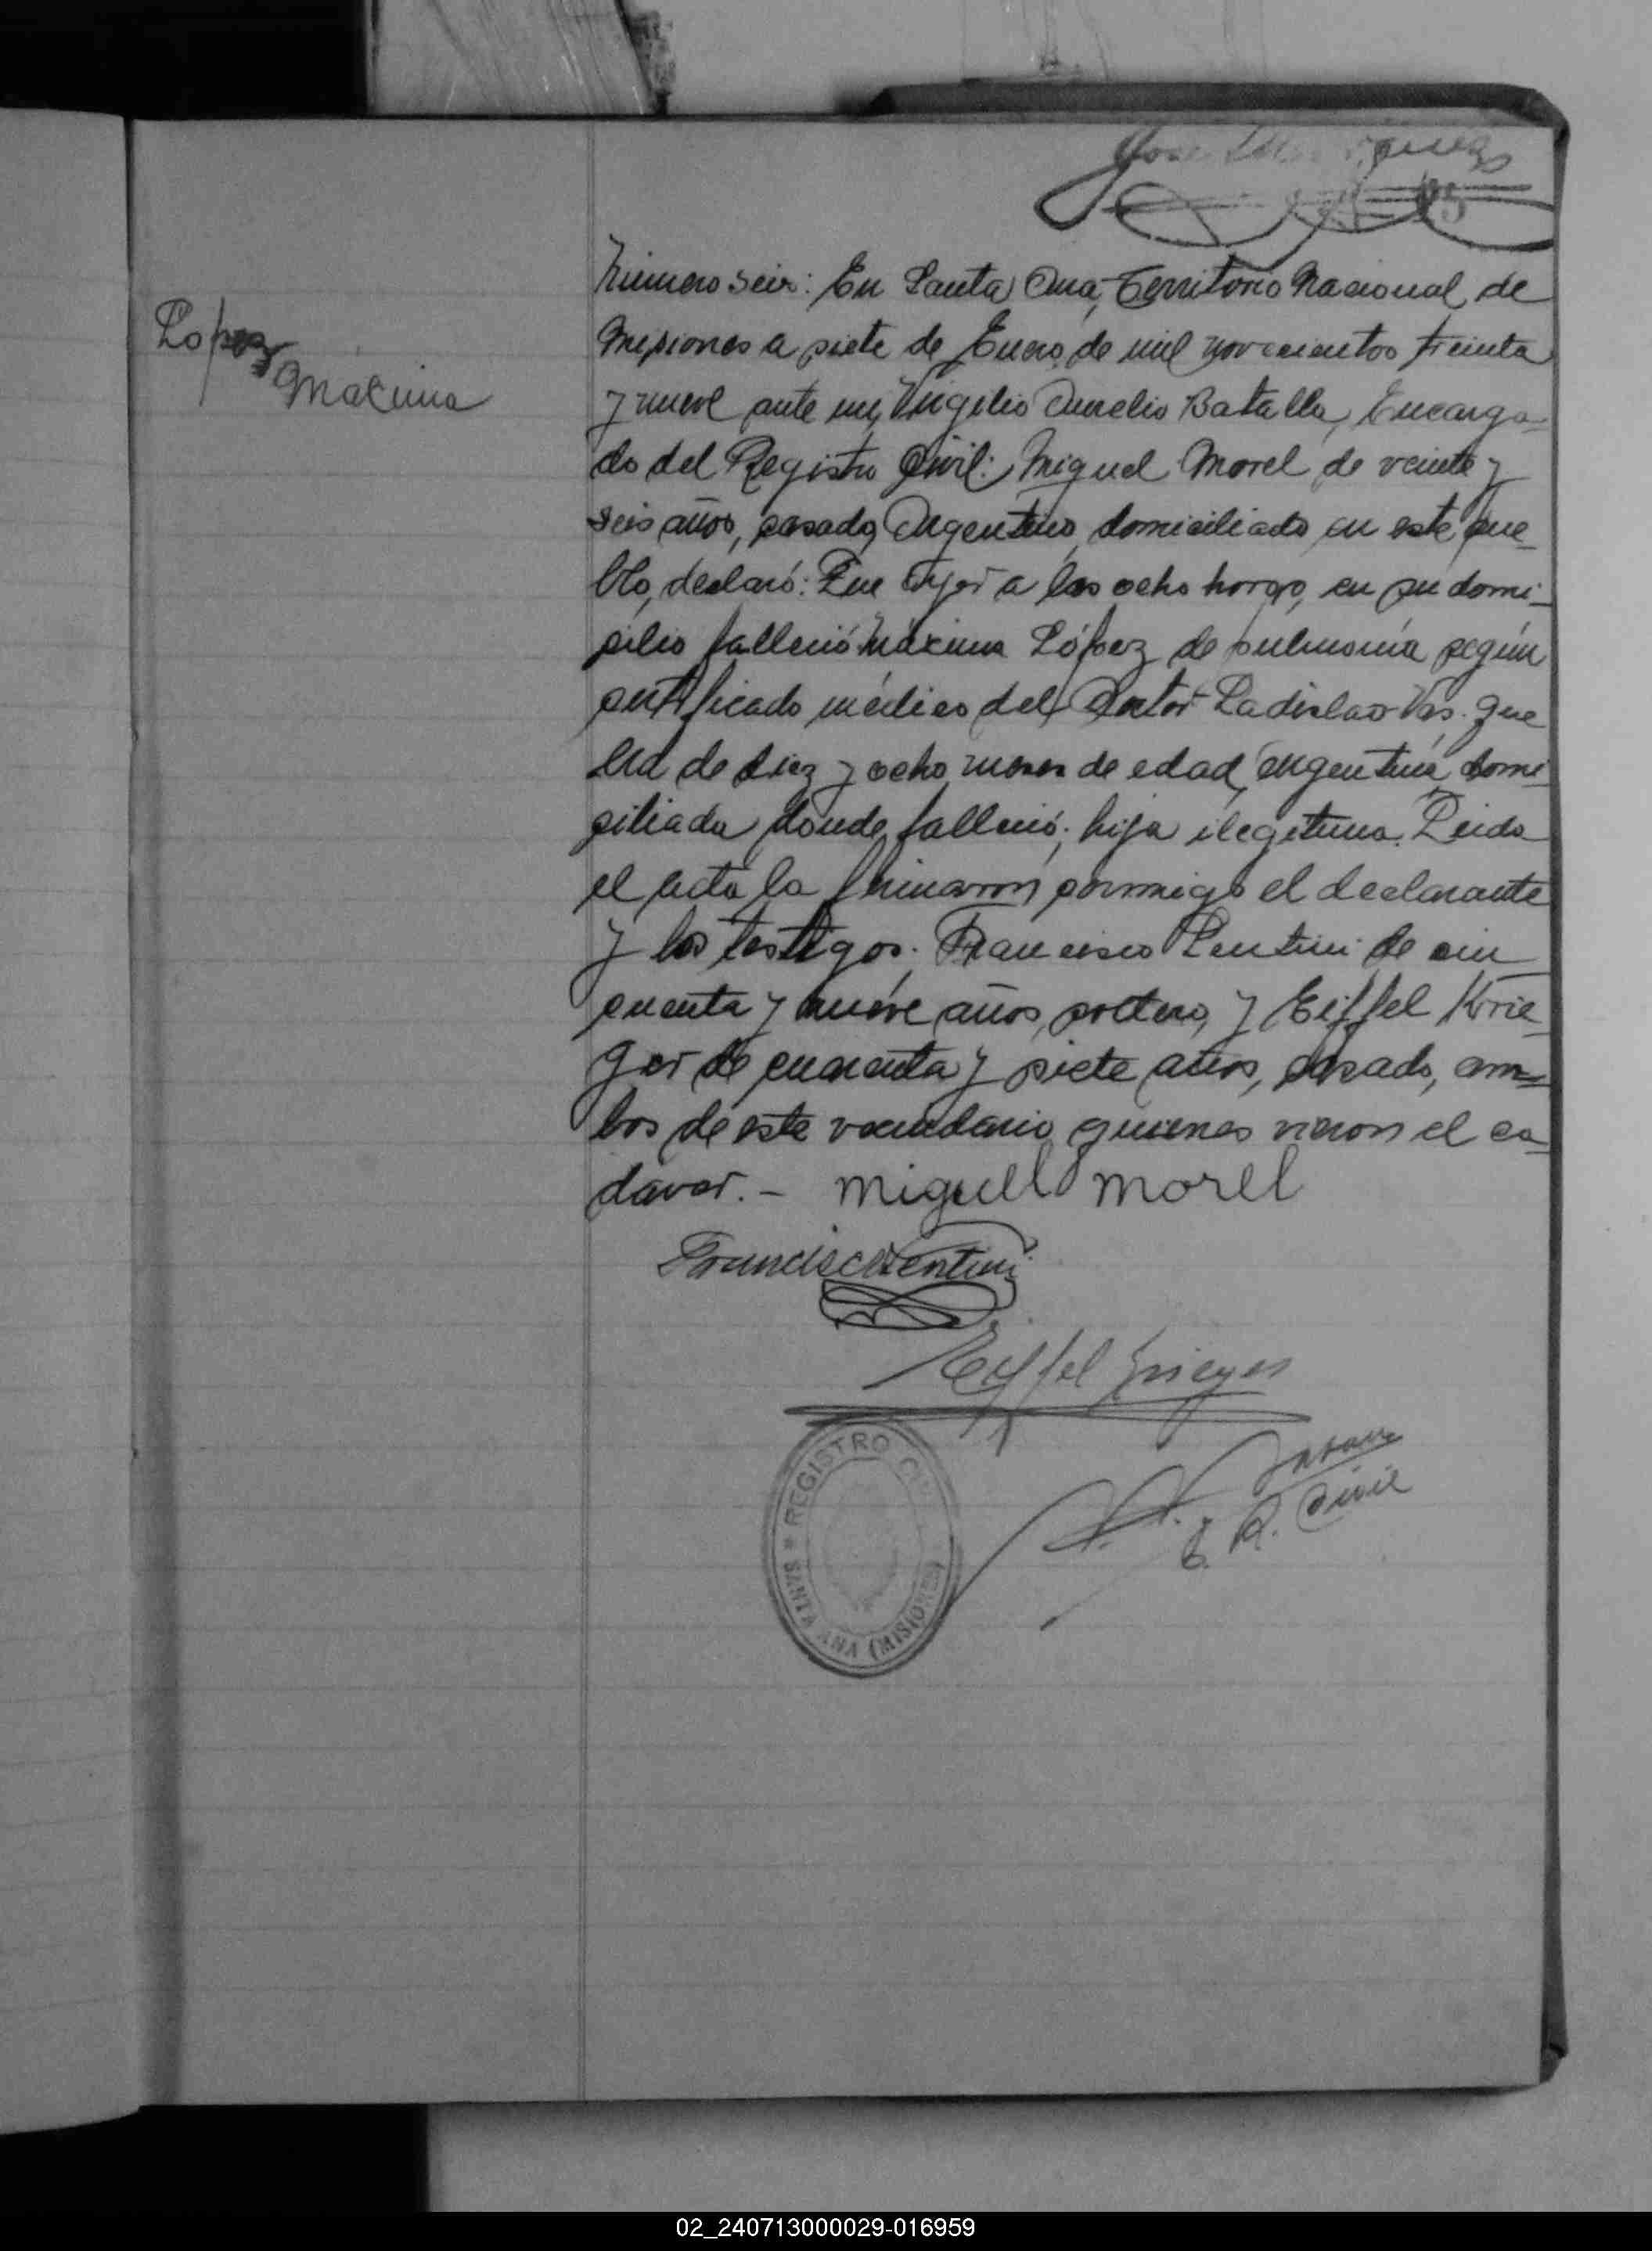 Jose
5
Lopez
Macima
Número seis: En Santa Ana, Territorio Nacional de
Misiones a siete de Enero de mil novecientos treinta
y nueve ante mi, Virgilio Aurelio Batalla, Encarga-
do del Registro Civil: Miguel Morel de veinte y
seis años, casado, Argentino, domiciliado en este pue-
blo, declaró: Que ayer a las ocho horas, en su domi-
cilio falleció Máxima López de pulmonía según
certificado médico del Doctor Ladislao Vas. que
era de diez y ocho meses de edad, argentina, domi-
ciliada donde falleció; hija ilegitima. Leida
el acta la firmaron conmigo el declarante
y los testigos. Francisco Lentini de cin
cuenta y nueve años, soltero, y Eiffel Krie-
ger de cuarenta y siete años, casado, am-
bos de este vecindario quienes vieron el ca-
daver. - Miguell Morel
Francisco Lentini
Eiffel Krieger
E. R. Civil
REGISTRO
SANTA ANA (MISIONES)
02_240713000029-016959